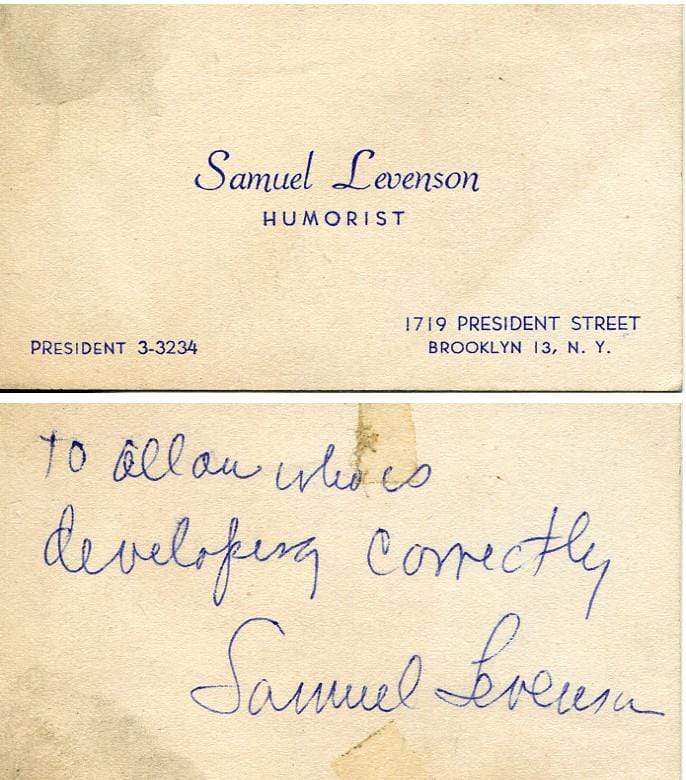 Samuel Levenson
HUMORIST
PRESIDENT 3-3234
1719 PRESIDENT STREET
BROOKLYN 13, N. Y.
To Allan who is
developing correctly
Samuel Levenson